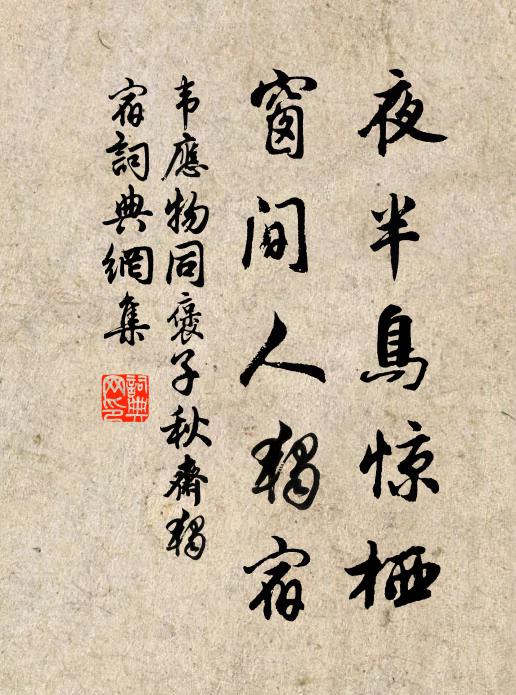 夜半鳥惊栖
窗间人獨宿
韦應物同褒子秋齋獨
宿詞典網集
詞典
网印